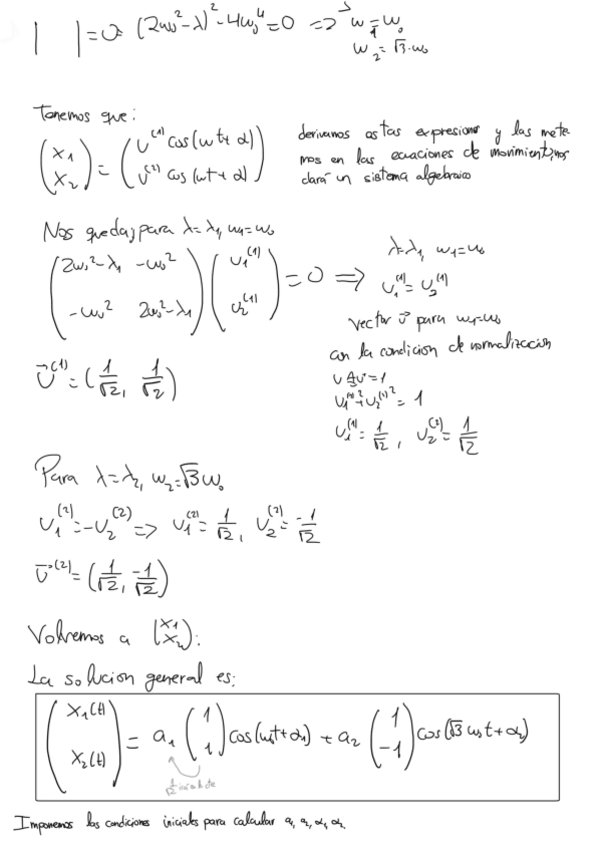 | | = 0 (2ω₀² - λ)² - 4ω₀⁴ = 0 => ω₁ = ω₀
ω₂ = √3·ω₀
Tenemos que:
(x₁ x₂) = (υ⁽¹⁾ cos(ωt + α) υ⁽²⁾ cos(ωt + α))
derivamos estas expresion y las mete
mos en las ecuaciones de movimiento, nos
dará un sistema algebraico
Nos queda, para λ = λ₁, ω₁ = ω₀
(2ω₀² - λ₁ -ω₀² -ω₀² 2ω₀² - λ₁) (υ₁⁽¹⁾ υ₂⁽¹⁾) = 0 =>
λ = λ₁, ω₁ = ω₀
υ₁⁽¹⁾ = υ₂⁽¹⁾
vector υ⃗ para ω₁ = ω₀
con la condicion de normalización
υ₁⁽¹⁾² + υ₂⁽¹⁾² = 1
υ₁⁽¹⁾ = 1/√2, υ₂⁽²⁾ = 1/√2
υ⃗⁽¹⁾ = (1/√2, 1/√2)
Para λ = λ₂, ω₂ = √3 ω₀
υ₁⁽²⁾ = -υ₂⁽²⁾ => υ₁⁽²⁾ = 1/√2, υ₂⁽²⁾ = -1/√2
υ⃗⁽²⁾ = (1/√2, -1/√2)
Volvemos a (x₁ x₂):
La solucion general es:
(x₁(t) x₂(t)) = a₁ (1 1) cos(ω₀t + α₁) + a₂ (1 -1) cos(√3 ω₀t + α₂)
1/√2
Imponemos las condiciones iniciales para calcular a₁, a₂, α₁, α₂.